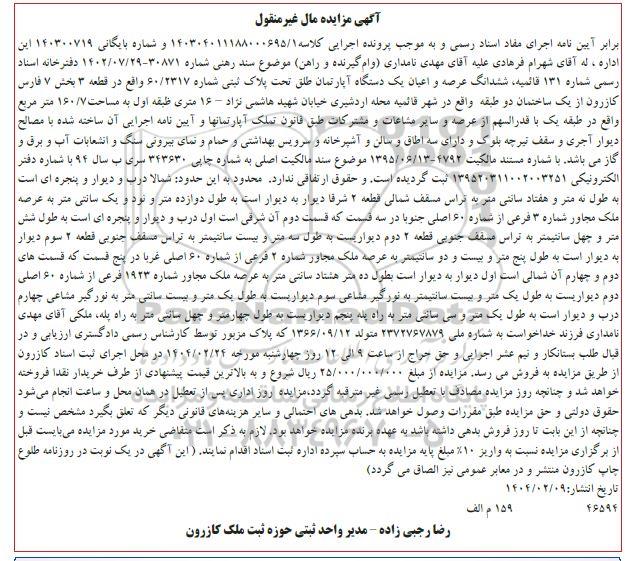 آگهی مزایده مال غیرمنقول
برابر آیین نامه اجرای مفاد اسناد رسمی و به موجب پرونده اجرایی کلاسه۱۴۰۳۰۴۰۱۱۱۸۸۰۰۰۶۹۵/۱ و شماره بایگانی ۱۴۰۳۰۰۷۱۹ این
اداره ، له آقای شهرام فرهادی علیه آقای مهدی نامداری (وام‌گیرنده و راهن) موضوع سند رهنی شماره ۳۰۸۷۱-۱۴۰۲/۰۷/۲۹ دفترخانه اسناد
رسمی شماره ۱۳۱ قائمیه، ششدانگ عرصه و اعیان یک دستگاه آپارتمان طلق تحت پلاک ثبتی شماره ۶۰/۲۳۱۷ واقع در قطعه ۳ بخش ۷ فارس
کازرون از یک ساختمان دو طبقه واقع در شهر قائمیه محله اردشیری خیابان شهید هاشمی نژاد – ۱۶ متری طبقه اول به مساحت۱۶۰/۷ متر مربع
واقع در طبقه یک با قدرالسهم از عرصه و سایر مشاعات و مشترکات طبق قانون تملک آپارتمانها و آیین نامه اجرایی آن ساخته شده با مصالح
دیوار آجری و سقف تیرچه بلوک و دارای سه اطاق و سالن و آشپزخانه و سرویس بهداشتی و حمام و نمای بیرونی سنگ و انشعابات آب و برق و
گاز می باشد. با شماره مستند مالکیت ۴۷۹۲-۱۳۹۵/۰۶/۱۳ موضوع سند مالکیت اصلی به شماره چاپی ۳۴۳۶۳۰ سری ب سال ۹۴ با شماره دفتر
الکترونیکی ۱۳۹۵۲۰۳۱۱۰۰۲۰۰۳۲۵۱ ثبت گردیده است. و حقوق ارتفاقی ندارد. محدود به این حدود: شمالا درب و دیوار و پنجره ای است
به طول نه متر و هفتاد سانتی متر به تراس مسقف شمالی قطعه ۲ شرقا دیوار به دیوار است به طول دوازده متر و نود و یک سانتی متر به عرصه
ملک مجاور شماره ۳ فرعی از شماره ۶۰ اصلی جنوبا در سه قسمت که قسمت دوم آن شرقی است اول درب و دیوار و پنجره ای است به طول شش
متر و چهل سانتیمتر به تراس مسقف جنوبی قطعه ۲ دوم دیواریست به طول سه متر و بیست سانتیمتر به تراس مسقف جنوبی قطعه ۲ سوم دیوار
به دیوار است به طول پنج متر و بیست و دو سانتیمتر به عرصه ملک مجاور شماره ۲ فرعی از شماره ۶۰ اصلی غربا در پنج قسمت که قسمت های
دوم و چهارم آن شمالی است اول دیوار به دیوار است بطول ده متر هشتاد سانتی متر به عرصه ملک مجاور شماره ۱۹۲۳ فرعی از شماره ۶۰ اصلی
دوم دیواریست به طول یک متر و بیست سانتیمتر به نورگیر مشاعی سوم دیواریست به طول یک متر و بیست سانتی متر به نورگیر مشاعی چهارم
درب و دیوار است به طول یک متر و سی سانتی متر به راه پله پنجم دیواریست به طول چهارمتر و چهل سانتی متر به راه پله، ملکی آقای مهدی
نامداری فرزند خداخواست به شماره ملی ۲۳۷۲۷۶۷۸۷۹ متولد ۱۳۶۶/۰۹/۱۲ که پلاک مزبور توسط کارشناس رسمی دادگستری ارزیابی و در
قبال طلب بستانکار و نیم عشر اجرایی و حق حراج از ساعت ۹ الی ۱۲ روز چهارشنبه مورخه ۱۴۰۴/۰۲/۲۴ در محل اجرای ثبت اسناد کازرون
از طریق مزایده به فروش می رسد. مزایده از مبلغ ۲۵/۰۰۰/۰۰۰/۰۰۰ ریال شروع و به بالاترین قیمت پیشنهادی از طرف خریدار نقدا فروخته
خواهد شد و چنانچه روز مزایده مصادف با تعطیل رسمی غیر مترقبه گردد،مزایده روز اداری پس از تعطیل در همان محل و ساعت انجام می‌شود
حقوق دولتی و حق مزایده طبق مقررات وصول خواهد شد. بدهی های احتمالی و سایر هزینه‌های قانونی دیگر که تعلق بگیرد مشخص نیست و
چنانچه از این بابت تا روز فروش بدهی داشته باشد به عهده برنده مزایده خواهد بود. لازم به ذکر است متقاضی خرید مورد مزایده می‌بایست قبل
از برگزاری مزایده نسبت به واریز ۱۰٪ مبلغ پایه مزایده به حساب سپرده اداره ثبت اسناد اقدام نمایند. ( این آگهی در یک نوبت در روزنامه طلوع
چاپ کازرون منتشر و در معابر عمومی نیز الصاق می گردد)
تاریخ انتشار:۱۴۰۴/۰۲/۰۹
۴۶۵۹۴ ۱۵۹ م الف
رضا رجبی زاده – مدیر واحد ثبتی حوزه ثبت ملک کازرون